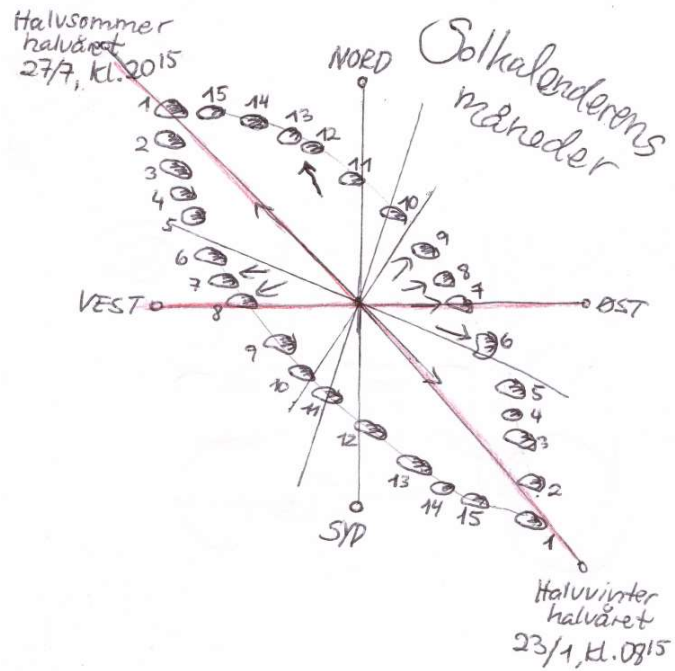 Halvsommer
halvåret
27/7, kl.20¹⁵
Solkalenderens
måneder
NORD
1
15
14
13
12
11
10
2
3
4
5
6
7
8
9
8
7
VEST
ØST
6
5
4
3
2
1
9
10
11
12
13
14
15
SYD
Halvvinter
halvåret
23/1, kl.08¹⁵